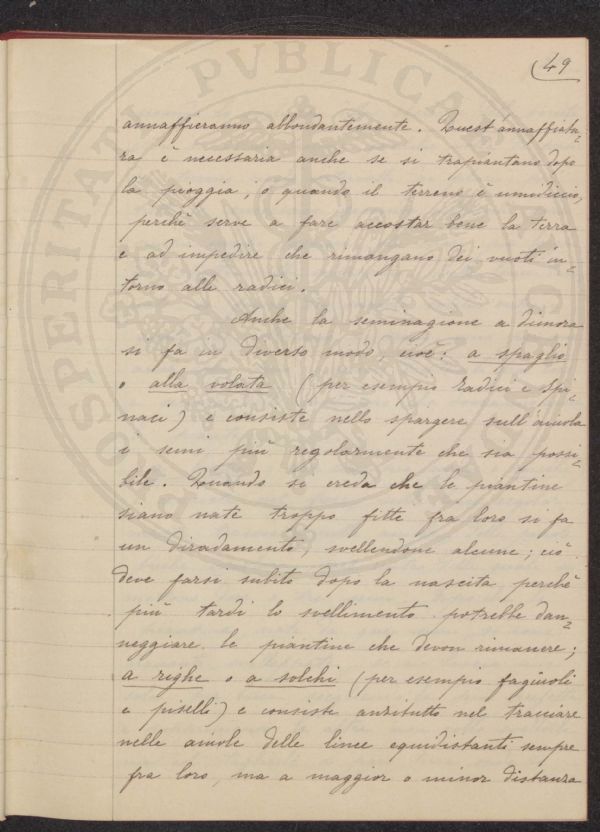 49
annaffieranno abbondantemente. Quest'annaffiatu-
ra è necessaria anche se si trapiantano dopo
la pioggia, o quando il terreno è umidiccio,
perchè serve a fare accostar bene la terra
e ad impedire che rimangano dei vuoti in-
torno alle radici.
Anche la seminagione a dimora
si fa in diverso modo, cioè: a spaglio
o alla volata (per esempio radici e spi-
naci) e consiste nello spargere sull'aiuola
i semi più regolarmente che sia possi-
bile. Quando si creda che le piantine
siano nate troppo fitte fra loro si fa
un diradamento, svellendone alcune; ciò
deve farsi subito dopo la nascita perchè
più tardi lo svellimento potrebbe dan-
neggiare le piantine che devon rimanere;
a righe o a solchi (per esempio fagiuoli
e piselli) e consiste anzitutto nel tracciare
nelle aiuole delle linee equidistanti sempre
fra loro, ma a maggior o minor distanza
PVBLICAE
PROSPERITATI